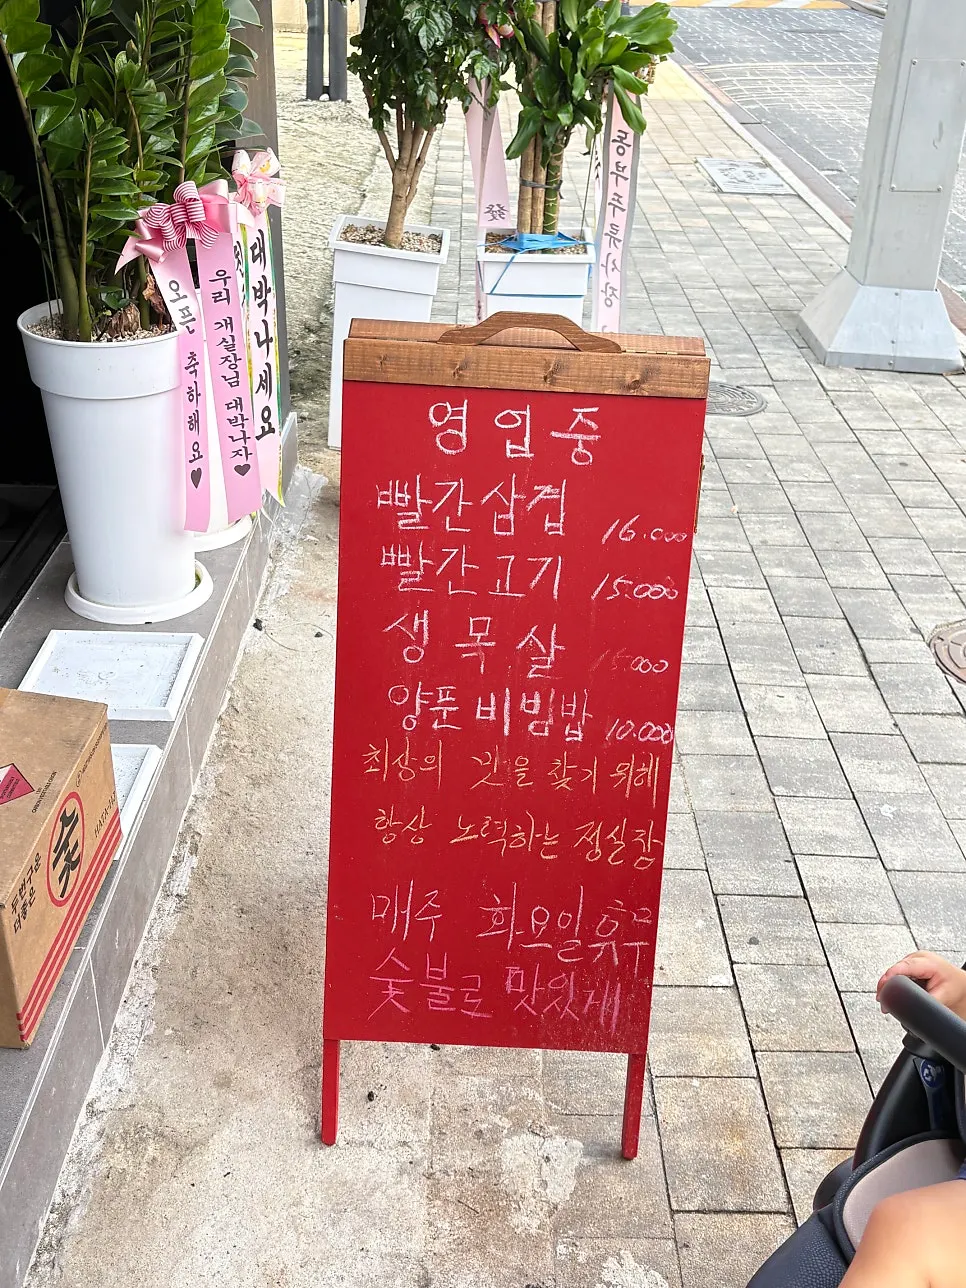 영업중
빨간삼겹 16.000
빨간고기 15.000
생목살 15.000
양푼비빔밥 10.000
최상의 맛을 찾기 위해
항상 노력하는 정실장
매주 화요일휴무
숯불로 맛있게
오픈 축하해요♥
우리 개실장님 대박나자♥
대박나세요
동부주류사장
發
두번구운
더좋은
숯